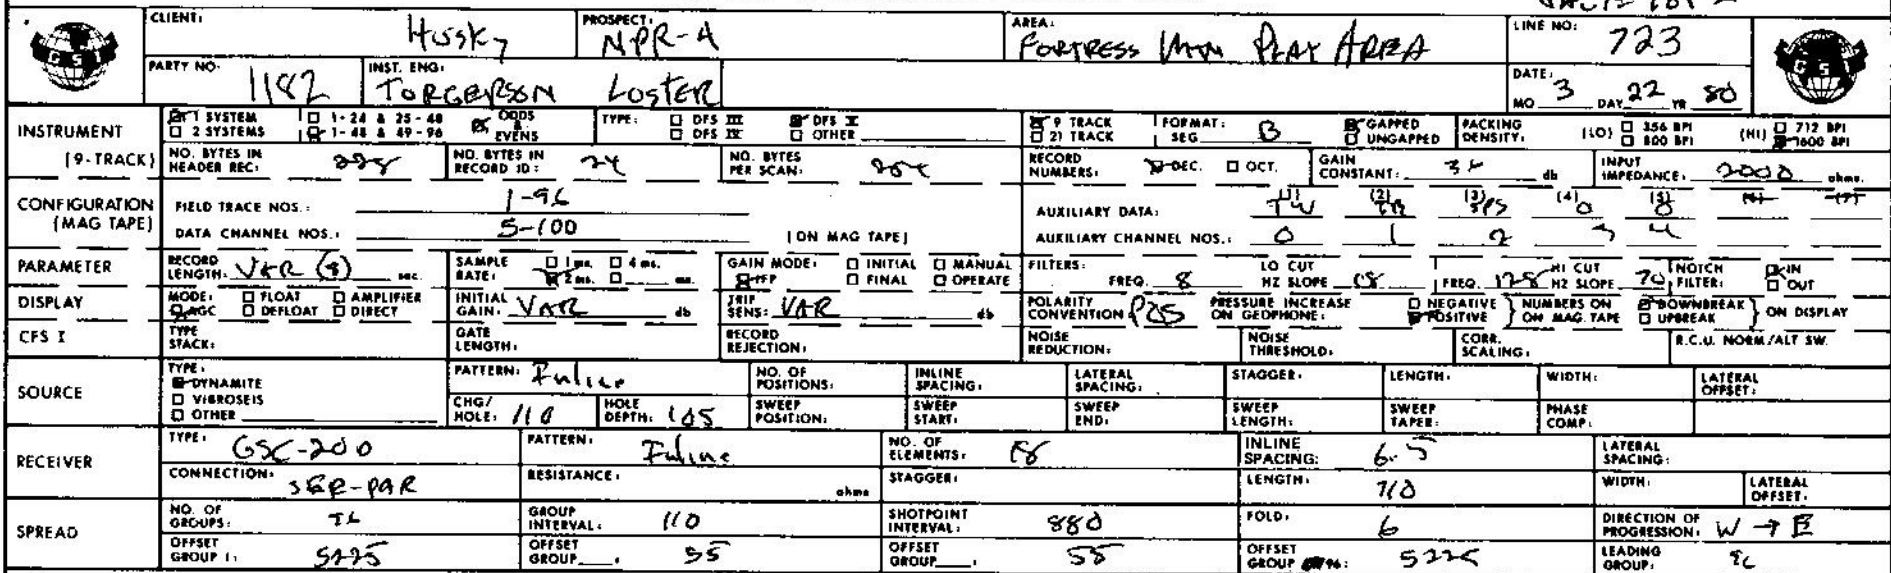 CLIENT: Husky PROSPECT: NPR-A AREA: FORTRESS MTN PLAY AREA LINE NO: 723
PARTY NO. 1182 INST. ENG: TORGERSON LOSTER DATE: MO 3 DAY 22 YR 80
GSI GSI
INSTRUMENT 1 SYSTEM 1-24 & 25-48 ODDS & EVENS TYPE: DFS III DFS V 9 TRACK FORMAT: GAPPED PACKING DENSITY: (LO) 356 BPI (HI) 712 BPI
2 SYSTEMS 1-48 & 49-96 DFS IV OTHER 21 TRACK SEG B UNGAPPED 800 BPI 1600 BPI
(9-TRACK) NO. BYTES IN HEADER REC: 228 NO. BYTES IN RECORD ID: 24 NO. BYTES PER SCAN: RECORD NUMBERS: DEC. OCT. GAIN CONSTANT: db INPUT IMPEDANCE: 2000 ohms.
CONFIGURATION FIELD TRACE NOS.: 1-96 AUXILIARY DATA: (1) TW (2) TB (3) (4) 0 (5) 0 (6) (7)
(MAG TAPE) DATA CHANNEL NOS.: 5-100 (ON MAG TAPE) AUXILIARY CHANNEL NOS.: 0 1 2 3 4
PARAMETER RECORD LENGTH: VAR sec. SAMPLE RATE: 1 ms. 4 ms. 2 ms. ms. GAIN MODE: INITIAL MANUAL IFP FINAL OPERATE FILTERS: FREQ. 8 LO CUT HZ SLOPE 18 FREQ. 128 HI CUT HZ SLOPE 70 NOTCH FILTER: IN OUT
DISPLAY MODE: FLOAT AMPLIFIER AGC DEFLOAT DIRECT INITIAL GAIN: VAR db TRIP SENS: VAR db POLARITY CONVENTION: POS PRESSURE INCREASE ON GEOPHONE: NEGATIVE POSITIVE NUMBERS ON MAG. TAPE DOWNBREAK UPBREAK ON DISPLAY
CFS I TYPE STACK: GATE LENGTH: RECORD REJECTION: NOISE REDUCTION: NOISE THRESHOLD: CORR. SCALING: R.C.U. NORM/ALT SW.
SOURCE TYPE: DYNAMITE VIBROSEIS OTHER PATTERN: Inline NO. OF POSITIONS: INLINE SPACING: LATERAL SPACING: STAGGER: LENGTH: WIDTH: LATERAL OFFSET:
CHG/HOLE: 110 HOLE DEPTH: 105 SWEEP POSITION: SWEEP START: SWEEP END: SWEEP LENGTH: SWEEP TAPER: PHASE COMP:
RECEIVER TYPE: GSC-200 PATTERN: Inline NO. OF ELEMENTS: 18 INLINE SPACING: 6.5 LATERAL SPACING:
CONNECTION: SER-PAR RESISTANCE: ohms STAGGER: LENGTH: 110 WIDTH: LATERAL OFFSET:
SPREAD NO. OF GROUPS: GROUP INTERVAL: 110 SHOTPOINT INTERVAL: 880 FOLD: 6 DIRECTION OF PROGRESSION: W → E
OFFSET GROUP 1: 5225 OFFSET GROUP : 55 OFFSET GROUP : 55 OFFSET GROUP 96: 5225 LEADING GROUP: